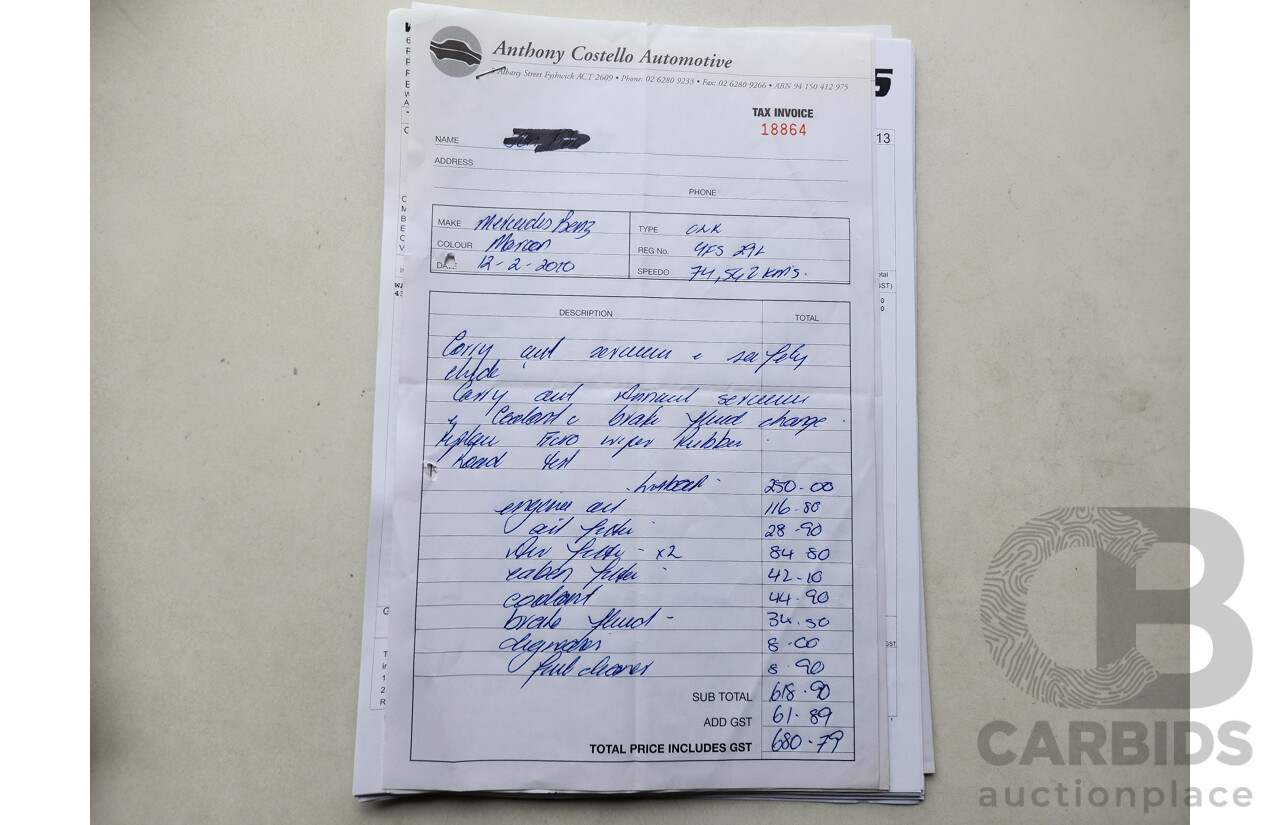 Anthony Costello Automotive
Albany Street Fyshwick ACT 2609 • Phone: 02 6280 9233 • Fax: 02 6280 9266 • ABN 94 150 412 975
TAX INVOICE
18864
NAME
ADDRESS
PHONE
MAKE Mercedes Benz TYPE CLK
COLOUR Maroon REG No. YFS 29L
DATE 12-2-2010 SPEEDO 74,542 KM'S.
DESCRIPTION TOTAL
Carry out service & safety
Carry out Annual service
& Coolant & brake fluid change
Replace wiper Rubber
Road test
Labour 250-00
engine oil 116-80
oil filter 28-90
Air filter - x2 84 80
cabin filter 42-10
coolant 44-90
brake fluid - 34.50
degreaser 8-00
fuel cleaner 8-90
SUB TOTAL 618-90
ADD GST 61-89
TOTAL PRICE INCLUDES GST 680-79
13
CARBIDS
auctionplace